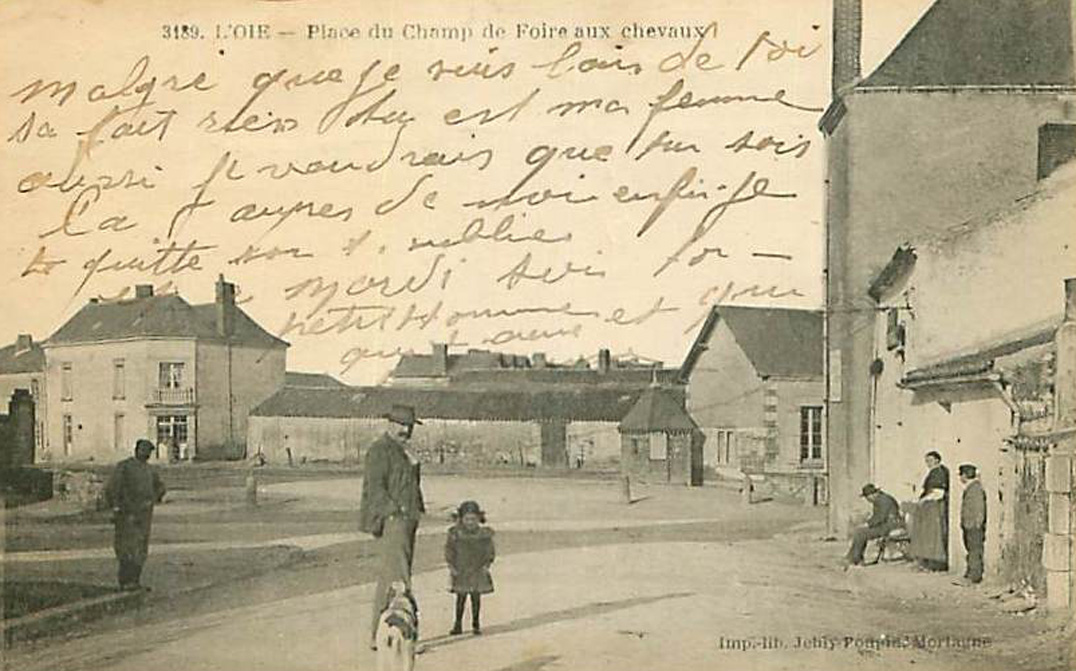 3189. L'OIE — Place du Champ de Foire aux chevaux
malgré que je suis loin de toi
sa fait rien tu est ma femme
aussi je voudrais que tu sois
la auprès de moi enfin je
te quitte son
mardi soir
petit Homme et
Imp.-lib. Jehly-Poupin, Mortagne